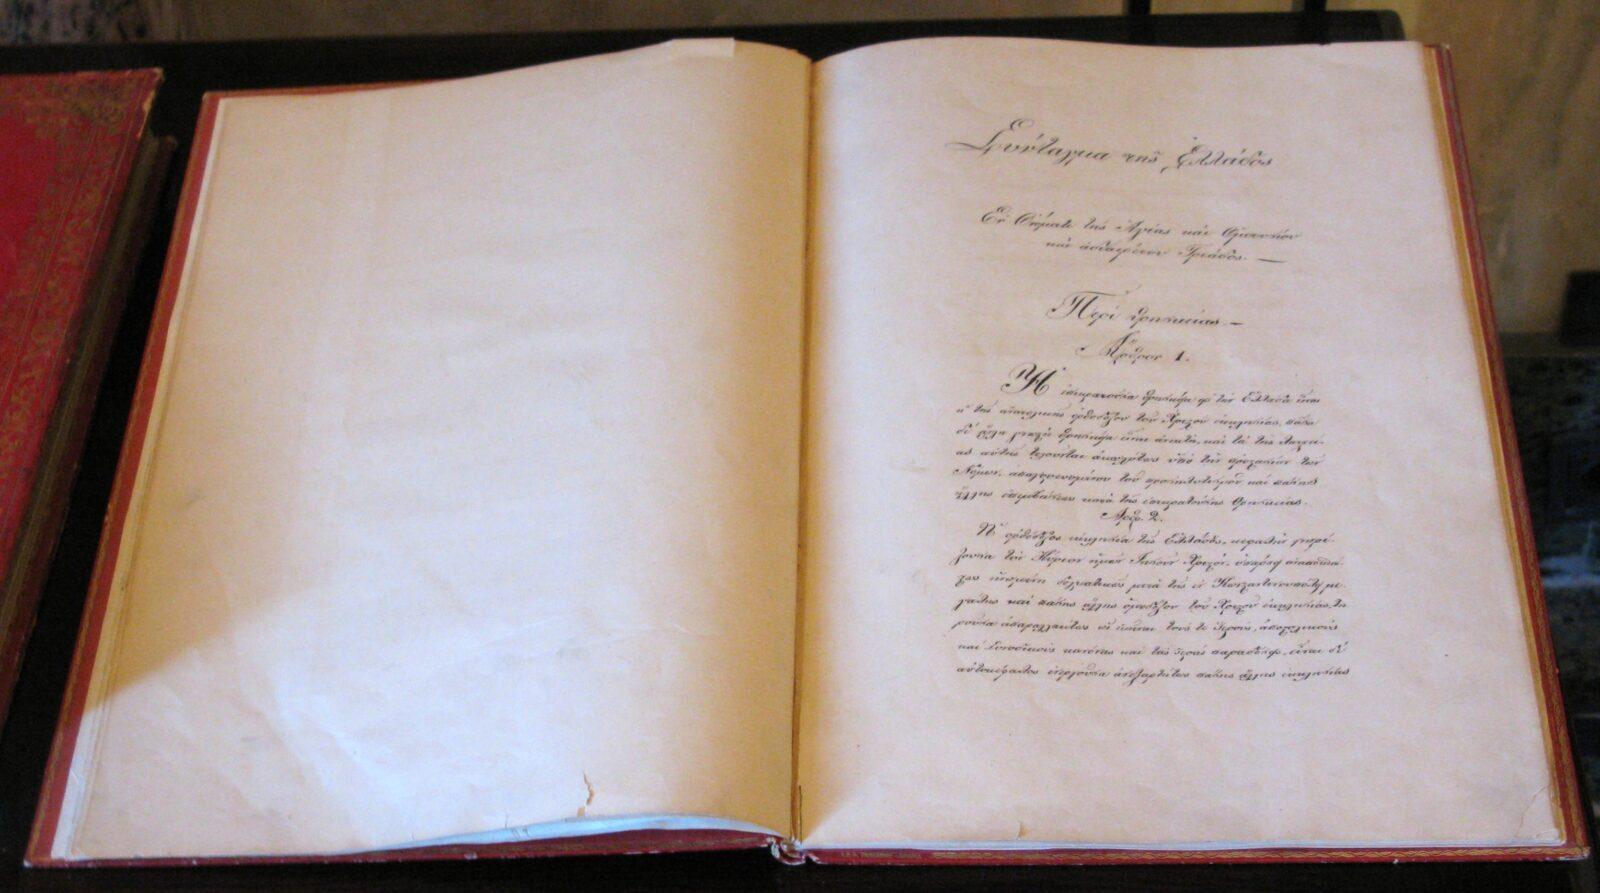 Σύνταγμα της Ελλάδος
Εν Ονόματι της Αγίας και Ομοουσίου
και αδιαιρέτου Τριάδος. —
Περί θρησκείας —
Άρθρον 1.
Ἡ επικρατούσα θρησκεία εις την Ελλάδα είναι
η της ανατολικής ορθοδόξου του Χριστού εκκλησίας, πάσα
δε άλλη γνωστή θρησκεία είναι ανεκτή, και τα της λατρεί-
ας αυτής τελούνται ακωλύτως υπό την προστασίαν των
Νόμων, απαγορευομένου του προσηλυτισμού και πάσης
άλλης επεμβάσεως κατά της επικρατούσης θρησκείας.
Άρθρ. 2.
Ἡ ορθόδοξος εκκλησία της Ελλάδος, κεφαλήν γνωρί-
ζουσα τον Κύριον ημών Ιησούν Χριστόν, υπάρχει αναποσπά-
στως ηνωμένη δογματικώς μετά της εν Κωνσταντινουπόλει με-
γάλης και πάσης άλλης ομοδόξου του Χριστού εκκλησίας, τη-
ρούσα απαραλλάκτως ως εκείναι τους τε ιερούς αποστολικούς
και συνοδικούς κανόνας και τας ιεράς παραδόσεις, είναι δε
αυτοκέφαλος ενεργούσα ανεξαρτήτως πάσης άλλης εκκλησίας